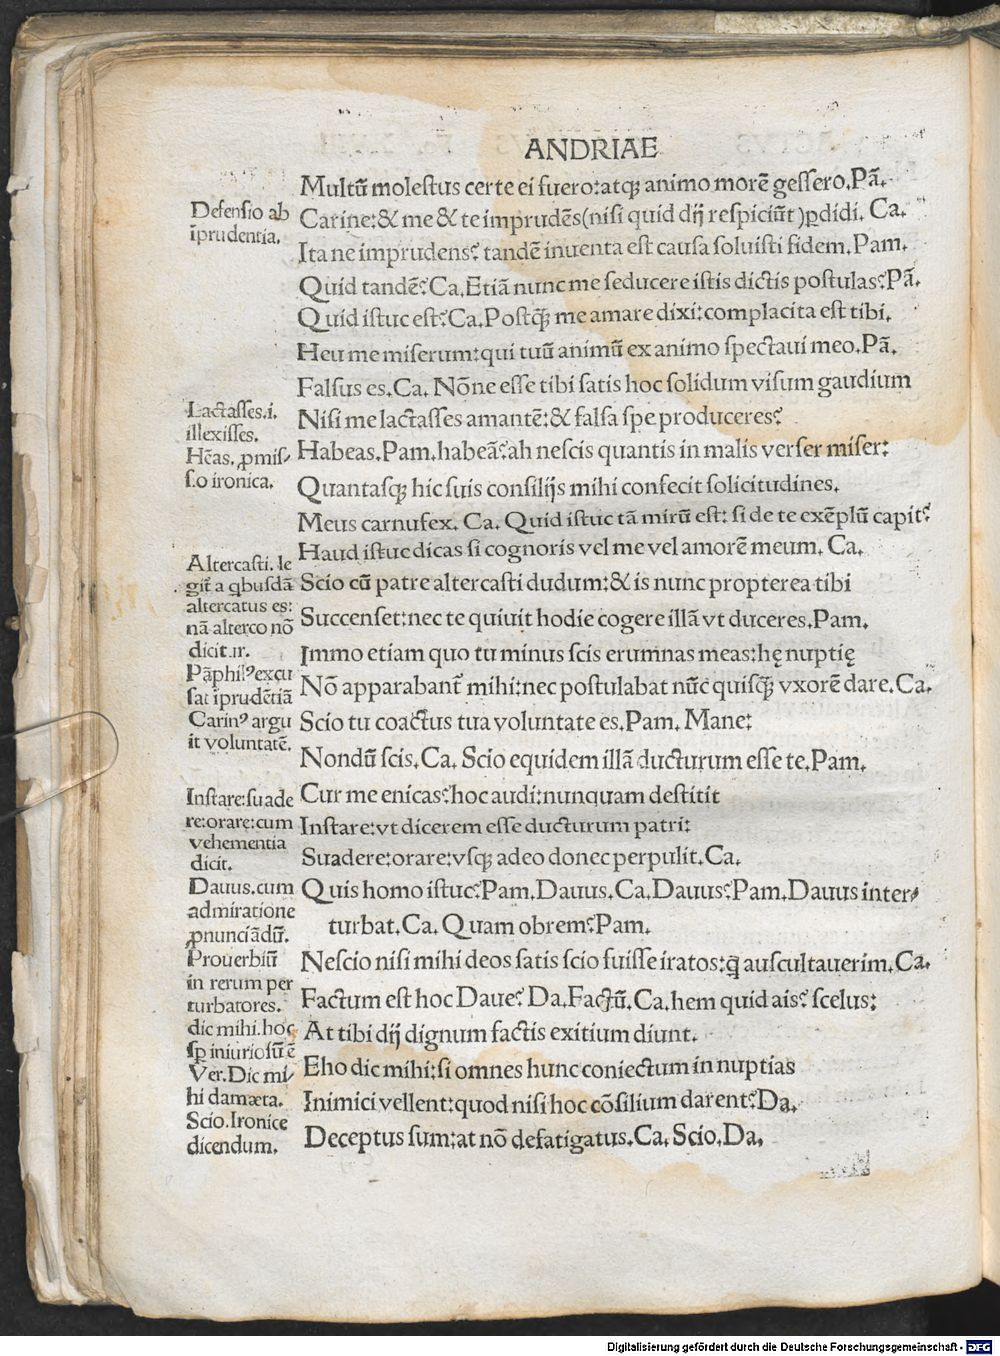 ANDRIAE
Multū molestus certe ei fuero:atqꝫ animo morē gessero.Pā.
Carine:& me & te imprudēs(nisi quid dij respiciūt)ꝑdidi. Ca.
Ita ne imprudens? tandē inuenta est causa soluisti fidem.Pam.
Quid tandē?Ca.Etiā nunc me seducere istis dictis postulas?Pā.
Quid istuc est?Ca.Postqꝫ me amare dixi:complacita est tibi.
Heu me miserum:qui tuū animū ex animo spectaui meo.Pā.
Falsus es.Ca. Nōne esse tibi satis hoc solidum visum gaudium
Nisi me lactasses amantē:& falsa spe produceres?
Habeas.Pam.habeā?ah nescis quantis in malis verser miser:
Quantasqꝫ hic suis consilijs mihi confecit solicitudines.
Meus carnufex. Ca. Quid istuc tā mirū est: si de te exēplū capit?
Haud istuc dicas si cognoris vel me vel amorē meum. Ca.
Scio cū patre altercasti dudum:& is nunc propterea tibi
Succenset:nec te quiuit hodie cogere illā vt duceres.Pam.
Immo etiam quo tu minus scis erumnas meas:hę nuptię
Nō apparabant̄ mihi:nec postulabat nūc quisqꝫ vxorē dare.Ca.
Scio tu coactus tua voluntate es.Pam. Mane:
Nondū scis.Ca. Scio equidem illā ducturum esse te.Pam.
Cur me enicas?hoc audi:nunquam destitit
Instare:vt dicerem esse ducturum patri:
Suadere:orare:vsqꝫ adeo donec perpulit.Ca.
Quis homo istuc?Pam.Dauus.Ca.Dauus?Pam.Dauus inter⸗
turbat.Ca. Quam obrem?Pam.
Nescio nisi mihi deos satis scio fuisse iratos:q̄ auscultauerim.Ca.
Factum est hoc Daue? Da.Factū.Ca.hem quid ais? scelus:
At tibi dij dignum factis exitium diunt.
Eho dic mihi:si omnes hunc coniectum in nuptias
Inimici vellent:quod nisi hoc cōsilium darent?Da.
Deceptus sum:at nō defatigatus.Ca. Scio.Da.
Defensio ab
īprudentia.
Lactasses.i.
illexisses.
Hēas. ꝓmis⸗
s.o ironica.
Altercasti. le
git̄ a qbusdā
altercatus es:
nā alterco nō
dicit.ır.
Pāphilꝰ excu
sat īprudētiā
Carinꝰ argu
it voluntatē.
Instare:suade
re:orare:cum
vehementia
dicit.
Dauus.cum
admiratione
ꝓnunciādū.
Prouerbiū
in rerum per
turbatores.
dic mihi.hoc
sꝑ iniuriosū ē
Ver.Dic mi⸗
hi damæta.
Scio.Ironice
dicendum.
Digitalisierung gefördert durch die Deutsche Forschungsgemeinschaft - DFG